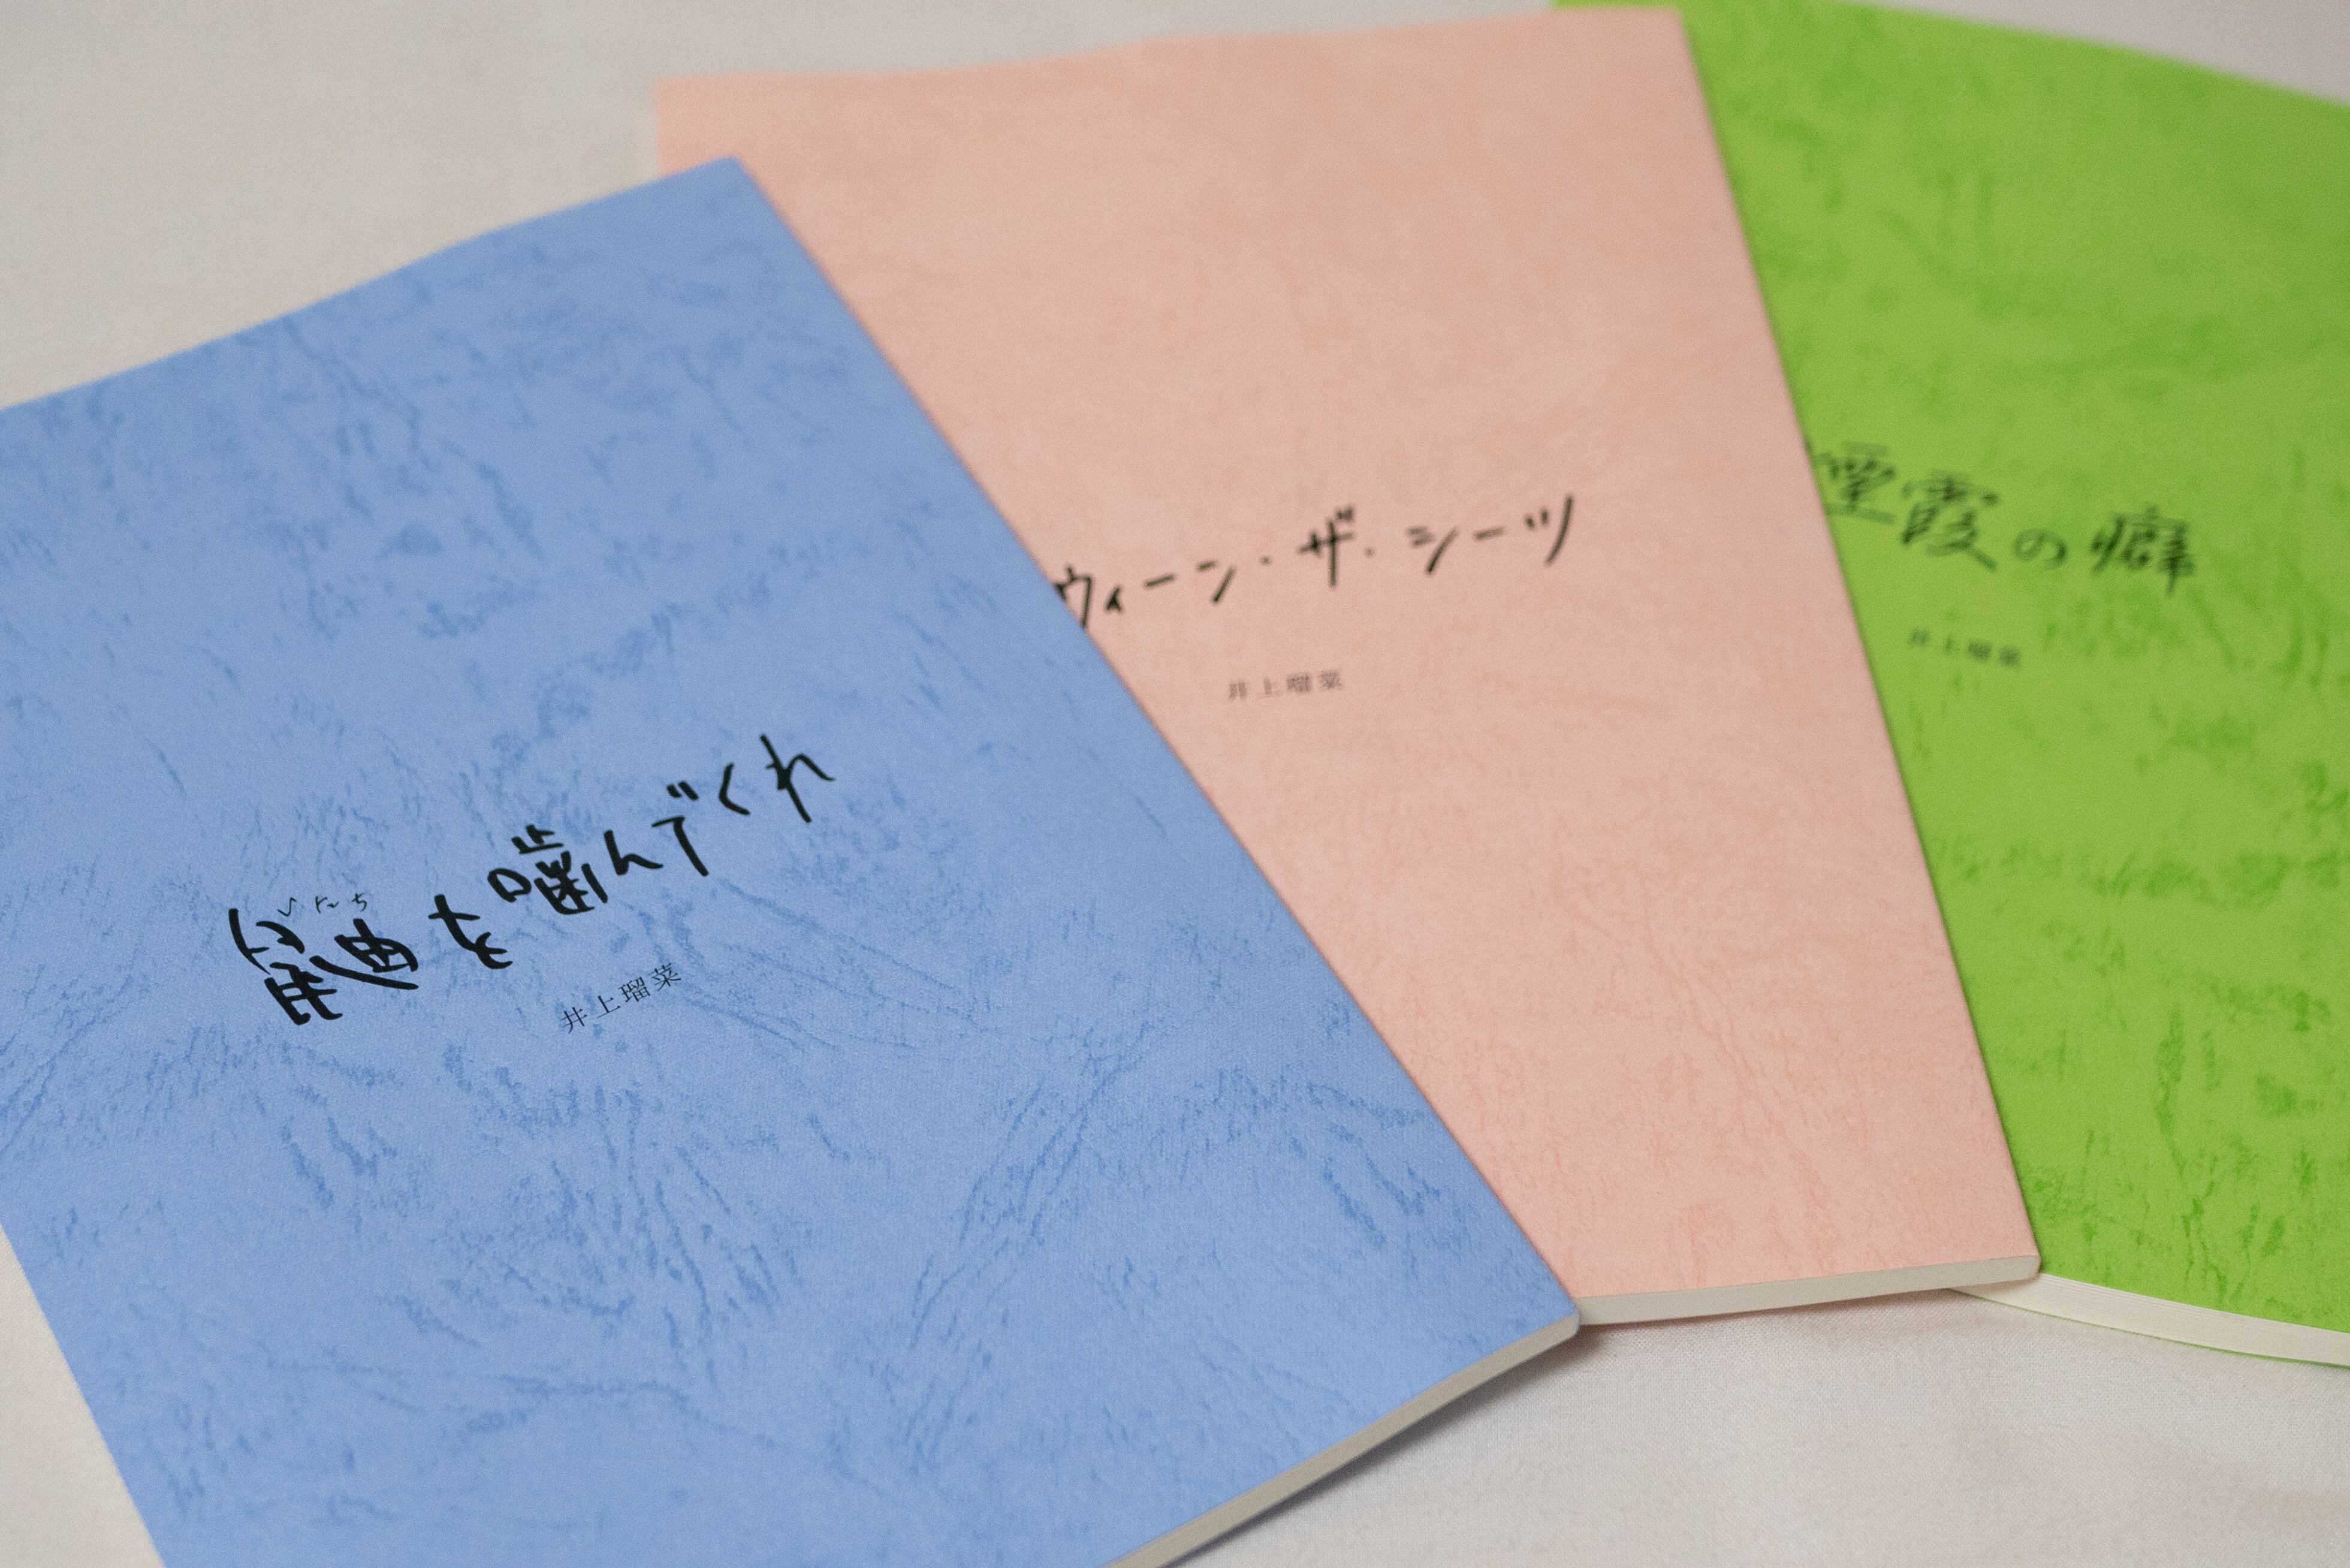 いたち
鼬を噛んでくれ
井上瑠菜
ウィーン・ザ・シーツ
井上瑠菜
煙霞の癖
井上瑠菜